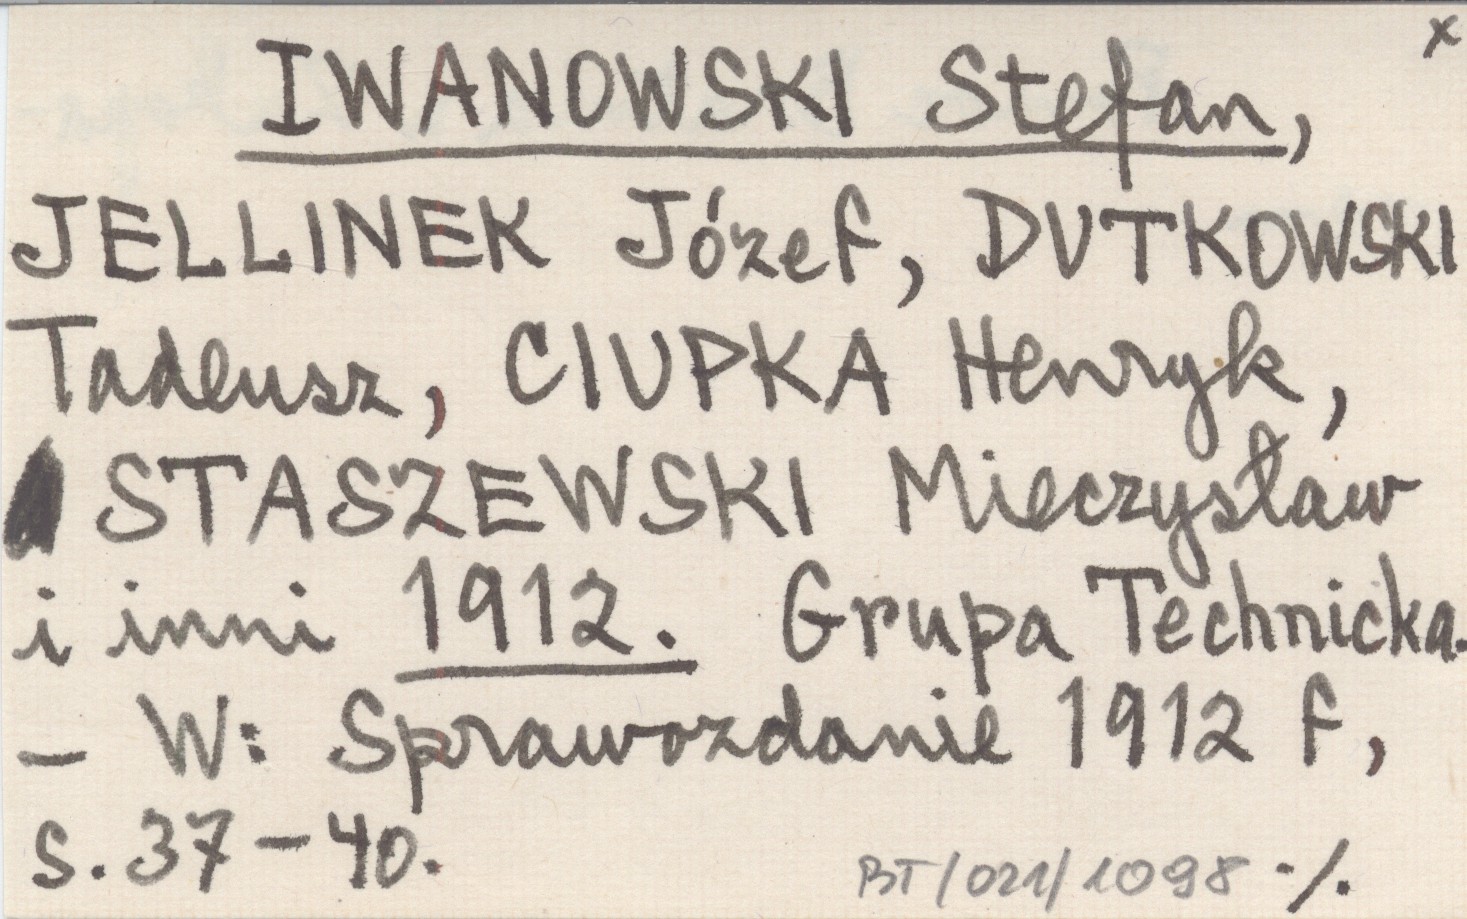 x
IWANOWSKI Stefan,
JELLINEK Józef, DUTKOWSKI
Tadeusz, CIUPKA Henryk,
STASZEWSKI Mieczysław
i inni 1912. Grupa Technicka.
– W: Sprawozdanie 1912 f,
s. 37–40.
BT/021/1098 ·/.